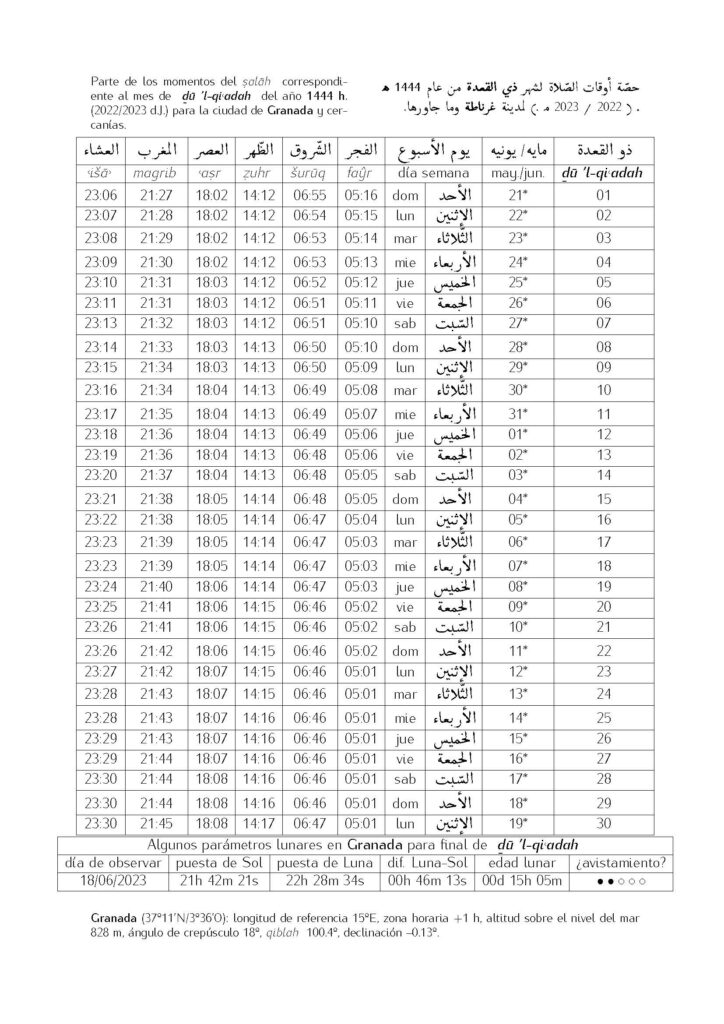 Parte de los momentos del ṣalāh correspondi-
ente al mes de ḏū ’l-qi‘adah del año 1444 h.
(2022/2023 d.J.) para la ciudad de Granada y cer-
canías.
حصّة أوقات الصّلاة لشهر ذي القعدة من عام 1444 ه
. ( 2022 / 2023 م .) لمدينة غرناطة وما جاورها.
العشاء المغرب العصر الظّهر الشّروق الفجر يوم الأسبوع مايه/ يونيه ذو القعدة
‘išā’ magrib ‘aṣr ẓuhr šurūq faŷr día semana may./jun. ḏū ’l-qi‘adah
23:06 21:27 18:02 14:12 06:55 05:16 dom الأحد 21* 01
23:07 21:28 18:02 14:12 06:54 05:15 lun الإثنين 22* 02
23:08 21:29 18:02 14:12 06:53 05:14 mar الثّلاثاء 23* 03
23:09 21:30 18:02 14:12 06:53 05:13 mie الأربعاء 24* 04
23:10 21:31 18:03 14:12 06:52 05:12 jue الخميس 25* 05
23:11 21:31 18:03 14:12 06:51 05:11 vie الجمعة 26* 06
23:13 21:32 18:03 14:12 06:51 05:10 sab السّبت 27* 07
23:14 21:33 18:03 14:13 06:50 05:10 dom الأحد 28* 08
23:15 21:34 18:03 14:13 06:50 05:09 lun الإثنين 29* 09
23:16 21:34 18:04 14:13 06:49 05:08 mar الثّلاثاء 30* 10
23:17 21:35 18:04 14:13 06:49 05:07 mie الأربعاء 31* 11
23:18 21:36 18:04 14:13 06:49 05:06 jue الخميس 01* 12
23:19 21:36 18:04 14:13 06:48 05:06 vie الجمعة 02* 13
23:20 21:37 18:04 14:13 06:48 05:05 sab السّبت 03* 14
23:21 21:38 18:05 14:14 06:48 05:05 dom الأحد 04* 15
23:22 21:38 18:05 14:14 06:47 05:04 lun الإثنين 05* 16
23:23 21:39 18:05 14:14 06:47 05:03 mar الثّلاثاء 06* 17
23:23 21:39 18:05 14:14 06:47 05:03 mie الأربعاء 07* 18
23:24 21:40 18:06 14:14 06:47 05:03 jue الخميس 08* 19
23:25 21:41 18:06 14:15 06:46 05:02 vie الجمعة 09* 20
23:26 21:41 18:06 14:15 06:46 05:02 sab السّبت 10* 21
23:26 21:42 18:06 14:15 06:46 05:02 dom الأحد 11* 22
23:27 21:42 18:07 14:15 06:46 05:01 lun الإثنين 12* 23
23:28 21:43 18:07 14:15 06:46 05:01 mar الثّلاثاء 13* 24
23:28 21:43 18:07 14:16 06:46 05:01 mie الأربعاء 14* 25
23:29 21:43 18:07 14:16 06:46 05:01 jue الخميس 15* 26
23:29 21:44 18:07 14:16 06:46 05:01 vie الجمعة 16* 27
23:30 21:44 18:08 14:16 06:46 05:01 sab السّبت 17* 28
23:30 21:44 18:08 14:16 06:46 05:01 dom الأحد 18* 29
23:30 21:45 18:08 14:17 06:47 05:01 lun الإثنين 19* 30
Algunos parámetros lunares en Granada para final de ḏū ’l-qi‘adah
día de observar puesta de Sol puesta de Luna dif. Luna-Sol edad lunar ¿avistamiento?
18/06/2023 21h 42m 21s 22h 28m 34s 00h 46m 13s 00d 15h 05m ●●○○○
Granada (37º11’N/3º36’O): longitud de referencia 15ºE, zona horaria +1 h, altitud sobre el nivel del mar
828 m, ángulo de crepúsculo 18º, qiblah 100.4º, declinación –0.13º.